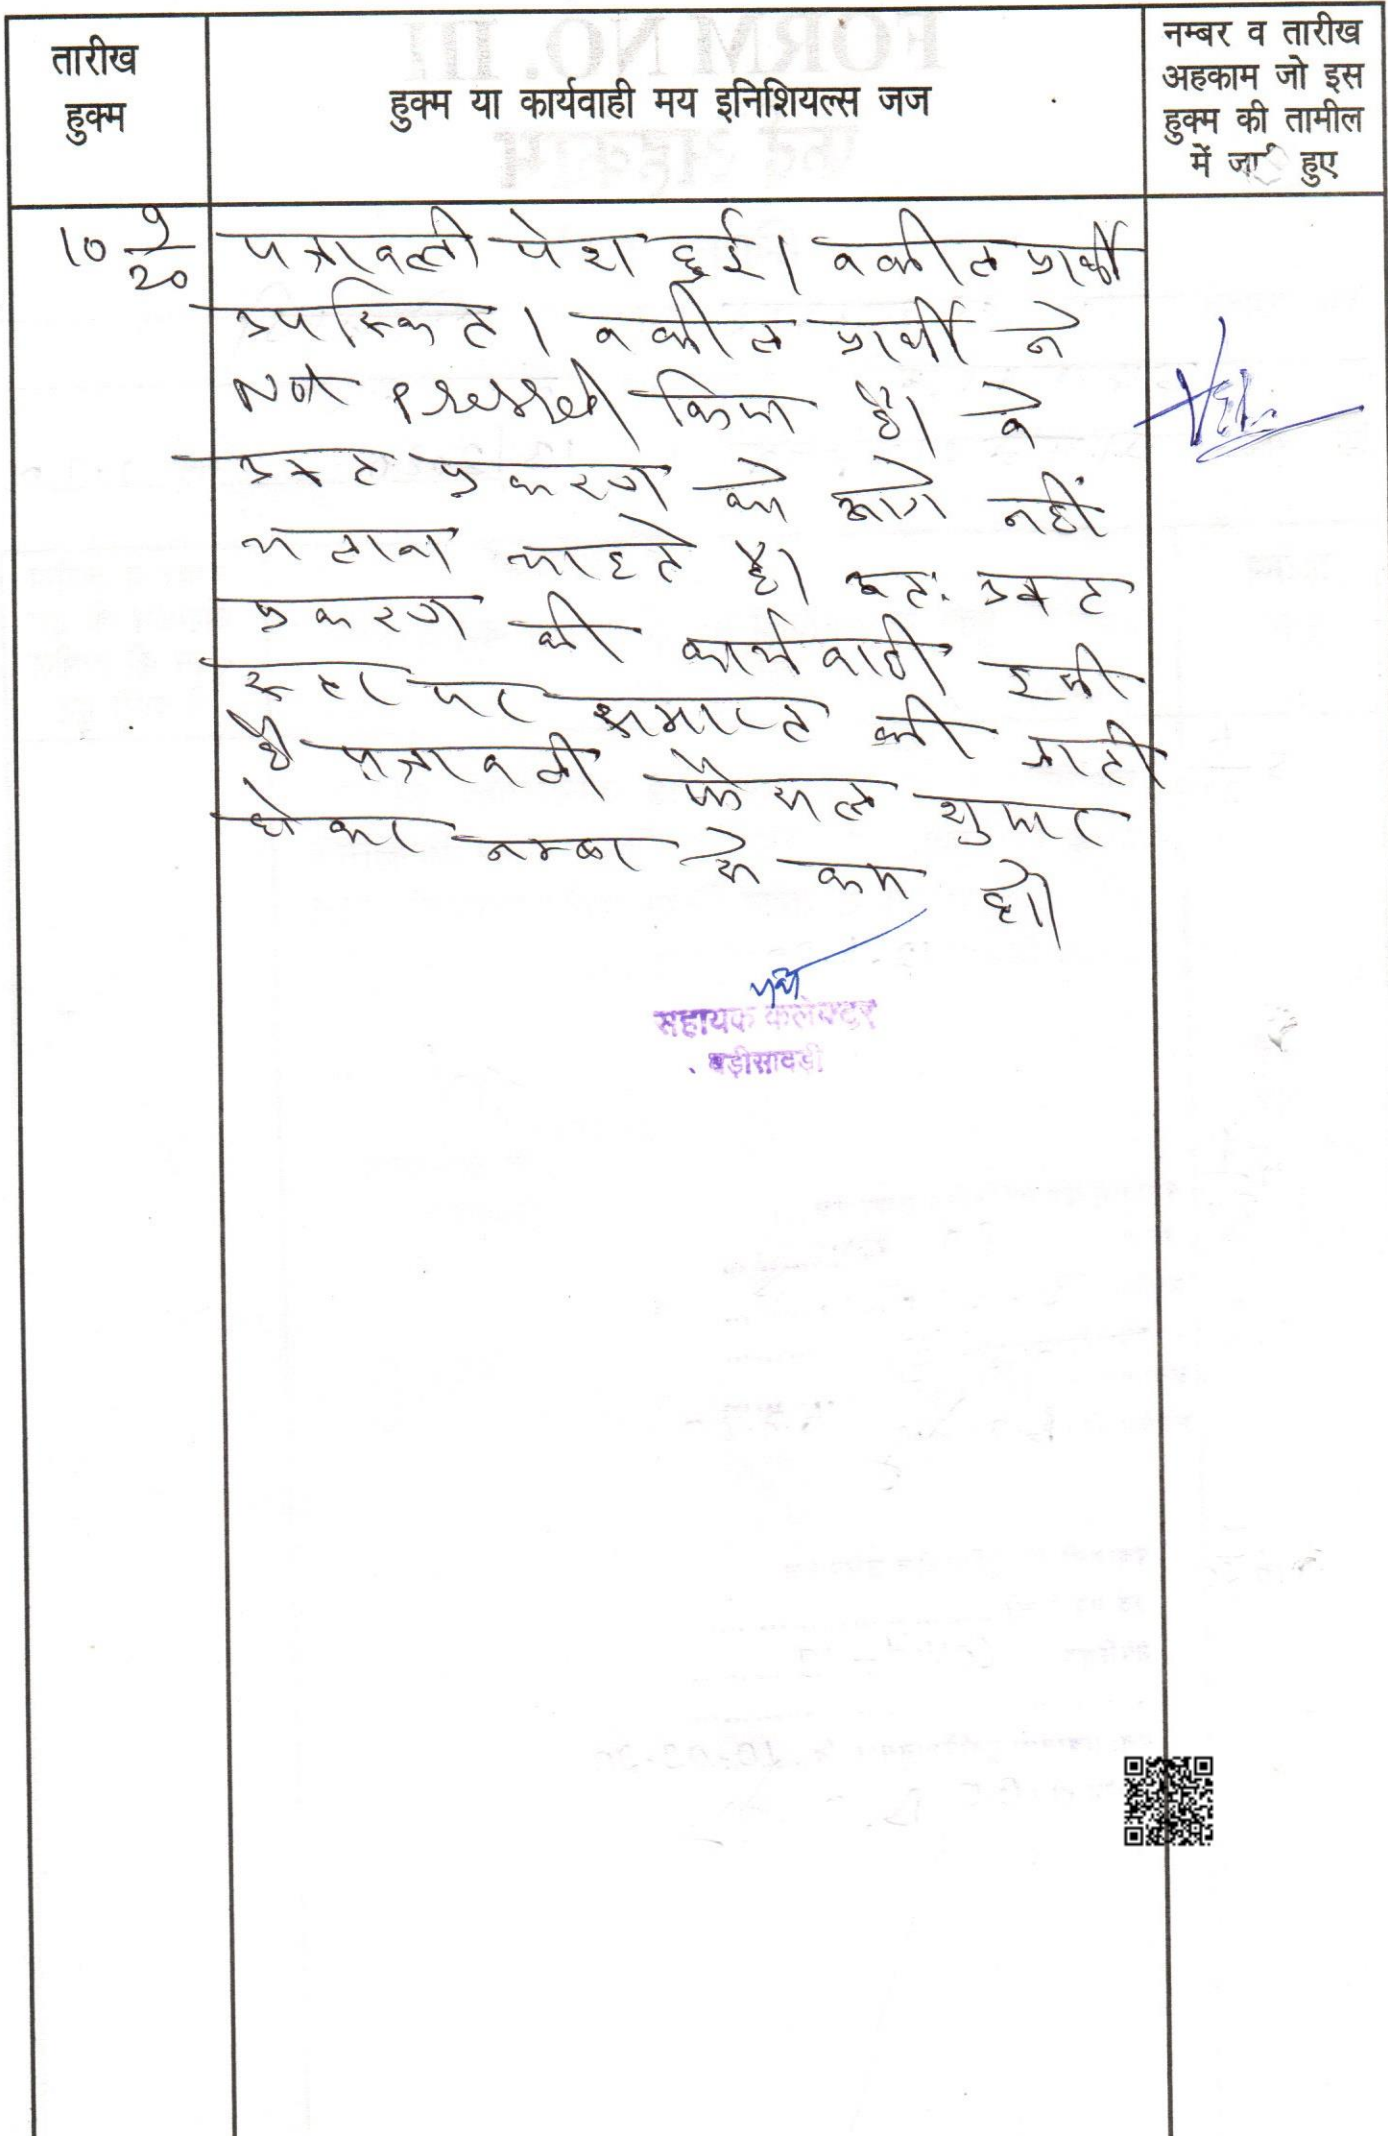 तारीख
हुक्म
हुक्म या कार्यवाही मय इनिशियल्स जज
नम्बर व तारीख
अहकाम जो इस
हुक्म की तामील
में जारी हुए
10 9/20
पत्रावली पेश हुई। वकील प्रार्थी
उपस्थित। वकील प्रार्थी ने
Not pressed किया है। वे
उक्त प्रकरण को आगे नहीं
चलाना चाहते है। अतः उक्त
प्रकरण की कार्यवाही इसी
स्तर पर समाप्त की जाती
है पत्रावली फैसल शुमार
होकर नम्बर से कम हो।
सहायक कलेक्टर
बड़ीसादड़ी